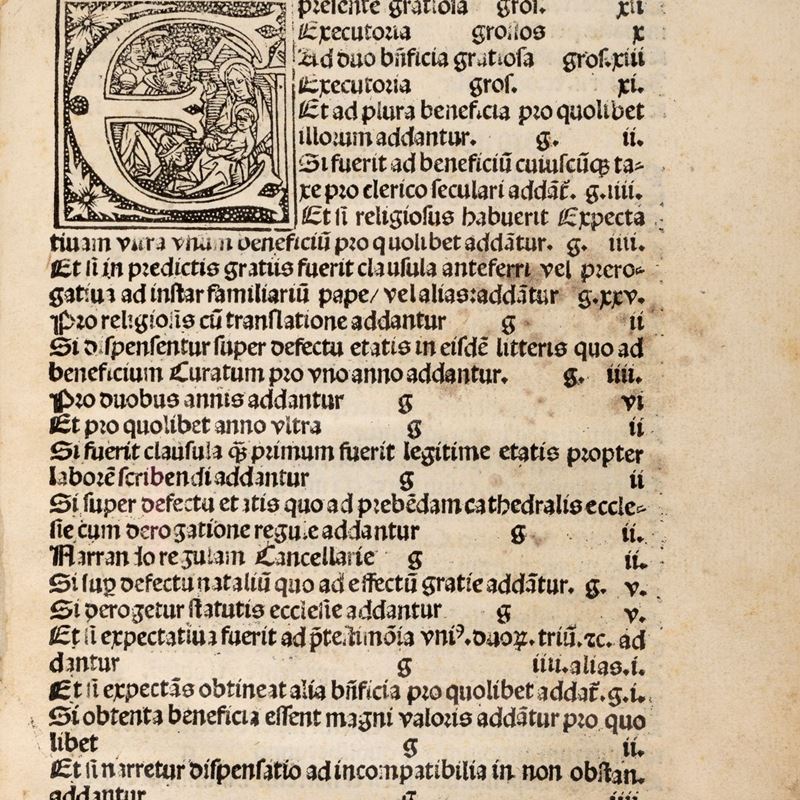 presente gratiosa gros. xii
Executoria grossos x
Ad duo bñficia gratiosa gros.xiii
Executoria gros. xi.
Et ad plura beneficia pro quolibet
illorum addantur. g. ii.
Si fuerit ad beneficiū cuiuscūqꝫ ta⸗
xe pro clerico seculari addāt̄. g.iiii.
Et si religiosus habuerit Expecta
tiuam beneficiū pro quolibet addātur. g. iiii.
Et si in predictis gratiis fuerit clausula anteferri vel prero⸗
gatiua ad instar familiariū pape/ vel alias:addātur g.xxv.
Pro religiosis cū translatione addantur g ii
Si dispensentur super defectu etatis in eisdē litteris quo ad
beneficium Curatum pro vno anno addantur. g. iiii.
Pro duobus annis addantur g vi
Et pro quolibet anno vltra g ii
Si fuerit clausula qꝫ primum fuerit legitime etatis propter
laborē scribendi addantur g ii
Si super defectu etatis quo ad prebēdam cathedralis eccle⸗
sie cum derogatione regule addantur g ii.
Narrando regulam Cancellarie g ii.
Si suꝑ defectu nataliū quo ad effectū gratie addātur. g. v.
Si derogetur statutis ecclesie addantur g v.
Et si expectatiua fuerit ad p̄testimōia vniꝰ.duoꝝ.triū.⁊c. ad
dantur g iiii.alias.i.
Et si expectās obtineat alia bñficia pro quolibet addat̄.g.i.
Si obtenta beneficia essent magni valoris addātur pro quo
libet g ii.
Et si narretur dispensatio ad incompatibilia in non obstan.
addantur g iiii